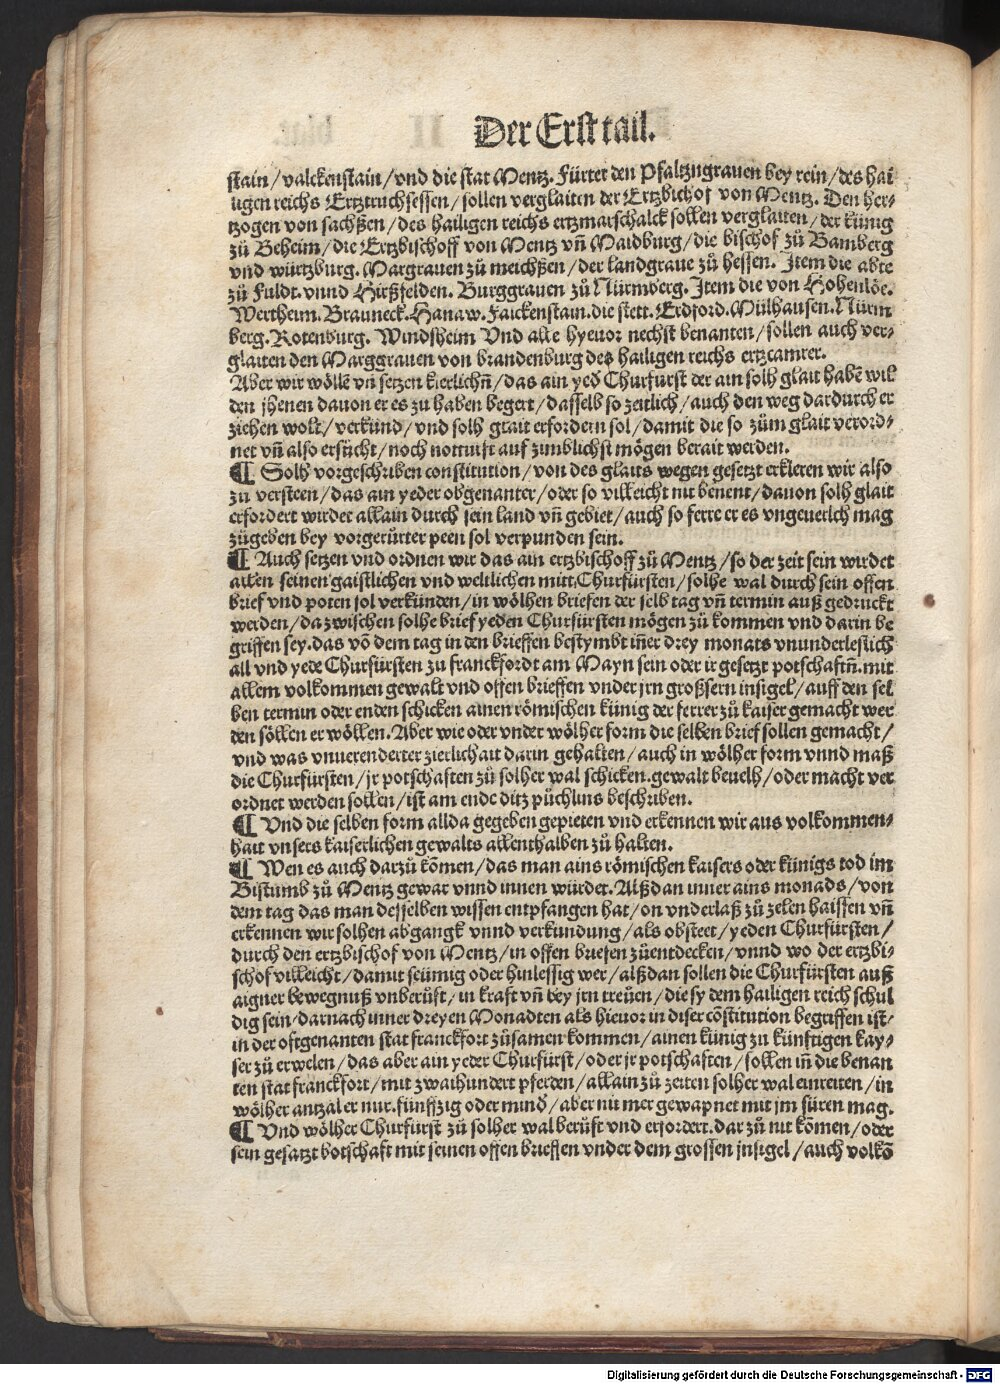 Der Erst tail.
stain / valckenstain / vnd die stat Mentz. Fürter den Pfaltzngrauen bey rein / des hai
ligen reichs Ertztruchsessen / sollen verglaiten der Ertzbichof von Mentz. Den her⸗
tzogen von sachßen / des hailigen reichs ertzmarschalck sollen verglaiten / der künig
zů Beheim / die Ertzbischoff von Mentz vñ Maidburg / die bischof zů Bamberg
vnd würtzburg. Margrauen zů meichßen / der landgraue zů hessen. Item die abte
zů Fuldt. vnnd Hirßfelden. Burggrauen zů Nürmberg. Item die von Hohenlöe.
Wertheim. Brauneck. Hanaw. Faickenstain. die stett. Erdford. Mülhausen. Nürm
berg. Rotenburg. Windsheim Vnd alle hyeuor nechst benanten / sollen auch ver⸗
glaiten den Marggrauen von brandenburg des hailigen reichs ertzcamrer.
Aber wir wöllē vñ setzen kierlichñ / das ain yed Churfürst der ain solh glait habē wil
den jhenen dauon er es zu haben begert / dasselb so zeitlich / auch den weg dardurch er
ziehen wolt / verkünd / vnd solh glait erfordern sol / damit die so zům glait verord⸗
net vñ also ersůcht / noch notturft auf zunblichst mögen berait werden.
¶ Solh vorgeschriben constitution / von des glaits wegen gesetzt erkleren wir also
zu versteen / das ain yeder obgenanter / oder so villeicht nit benent / dauon solh glait
erfordert wirdet allain durch sein land vñ gebiet / auch so ferre er es vngeuerlch mag
zůgeben bey vorgerůrter peen sol verpunden sein.
¶ Auch setzen vnd ordnen wir das ain ertzbischoff zů Mentz / so der zeit sein wirdet
allen seinen gaistlichen vnd weltlichen mitt Churfürsten / solhe wal durch sein offen
brief vnd poten sol verkünden / in wölhen briefen der selb tag vñ termin auß gedruckt
werden / da zwischen solhe brief yeden Churfürsten mögen zů kommen vnd darin be
griffen sey. das vō dem tag in den brieffen bestymbt iñer drey monats vnunderleslich
all vnd yede Churfürsten zu franckfordt am Mayn sein oder ir gesetzt potschaftñ. mit
allem volkommen gewalt vnd offen brieffen vnder jrn großsern insigel / auff den sel
ben termin oder enden schicken ainen römischen künig der ferrer zů kaiser gemacht wer
den söllen er wöllen. Aber wie oder vnder wölher form die selben brief sollen gemacht /
vnd was vnuerenderter zierlichait darin gehalten / auch in wölher form vnnd maß
die Churfürsten / jr potschaften zů solher wal schicken. gewalt beuelh / oder macht ver
ordnet werden sollen / ist am ende ditz půchlins beschriben.
¶ Vnd die selben form allda gegeben gepieten vnd erkennen wir aus volkommen⸗
hait vnsers kaiserlichen gewalts allenthalben zů halten.
¶ Wen es auch darzů kōmen / das man ains römischen kaisers oder künigs tod im
Bistumb zů Mentz gewar vnnd innen würdet. Alßdan inner ains monads / von
dem tag das man desselben wissen entpfangen hat / on vnderlaß zů zelen haissen vñ
erkennen wir solhen abgangk vnnd verkundung / als obsteet / yeden Churfürsten /
durch den ertzbischof von Mentz / in offen briefen zůentdecken / vnnd wo der ertzbi⸗
schof villeicht / damit seümig oder hinlessig wer / alßdan sollen die Churfürsten auß
aigner bewegnuß vnberüft / in kraft vñ bey jrn treüen / die sy dem hailigen reich schul
dig sein / darnach inner dreyen Monadten als hieuor in diser cōstitution begriffen ist /
in der oftgenanten stat franckfort zůsamen kommen / ainen künig zu künftigen kay⸗
ser zů erwelen / das aber ain yeder Churfürst / oder jr potschaften / sollen iñ die benan
ten stat franckfort / mit zwaihundert pferden / allain zů zeiten solher wal einreiten / in
wölher antzal er nur. fünffzig oder mind / aber nit mer gewapnet mit jm füren mag.
¶ Vnd wölher Churfürst zů solher wal berüft vnd erfordert. dar zů nit kōmen / oder
sein gesatzt botschaft mit seinen offen brieffen vnder dem grossen jnsigel / auch volkō
Digitalisierung gefördert durch die Deutsche Forschungsgemeinschaft - DFG